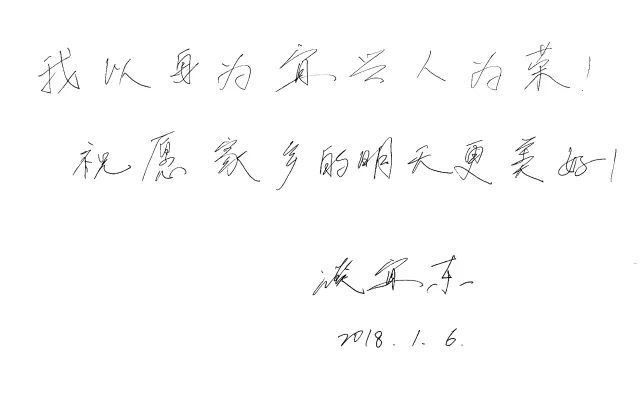 我以身为宜兴人为荣!
祝愿家乡的明天更美好!
谈宜东
2018.1.6.